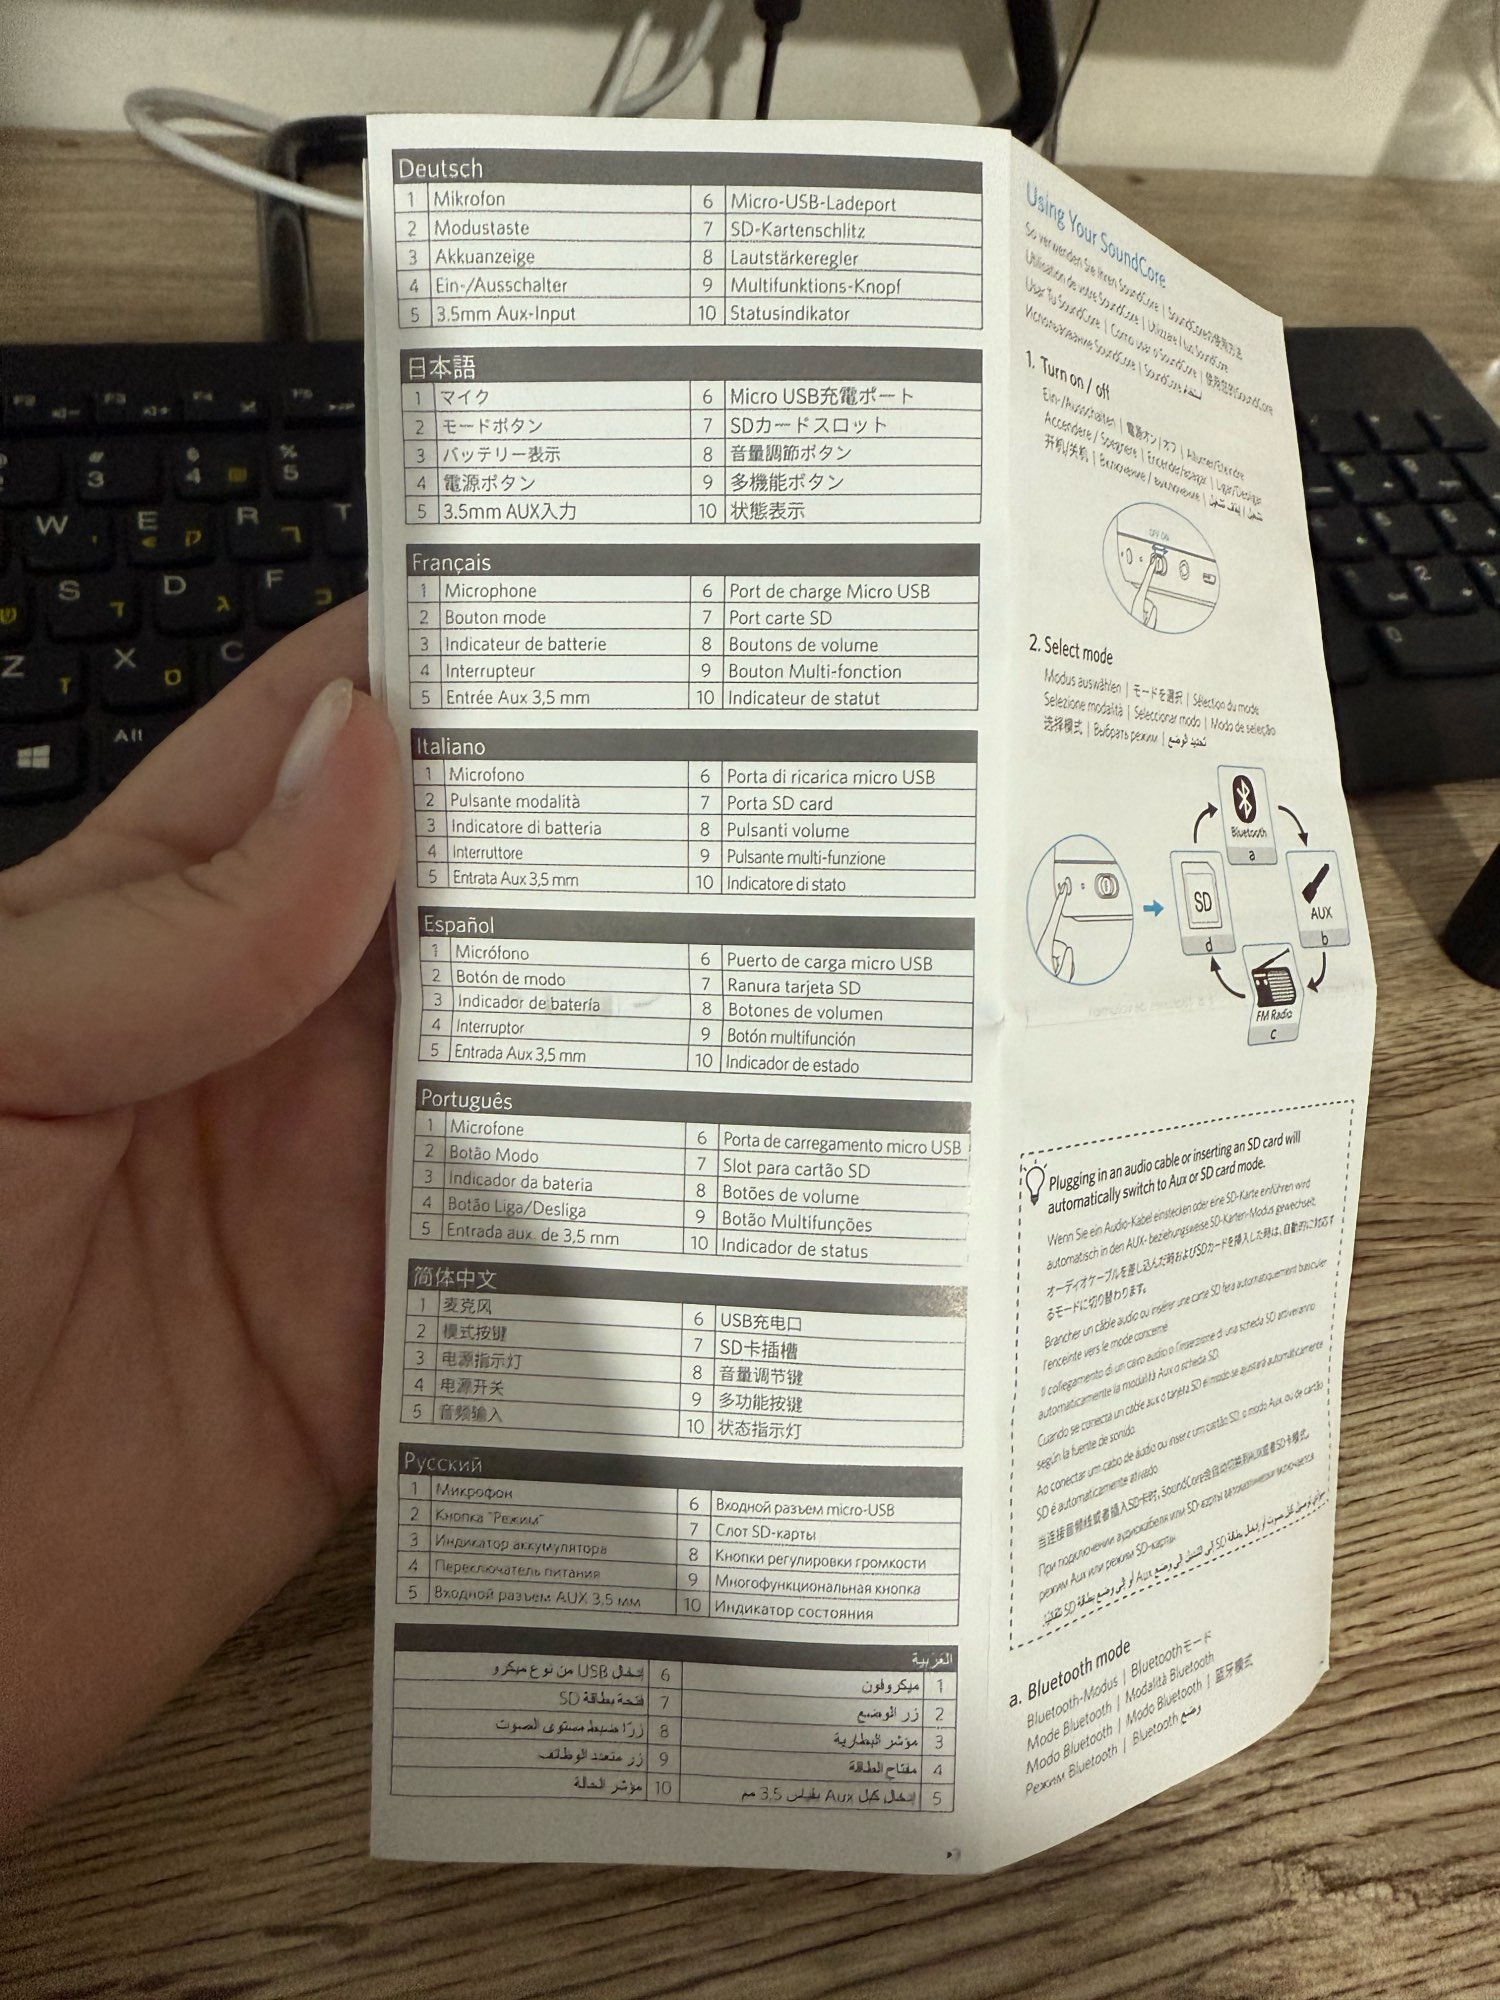 Deutsch
1 Mikrofon 6 Micro-USB-Ladeport
2 Modustaste 7 SD-Kartenschlitz
3 Akkuanzeige 8 Lautstärkeregler
4 Ein-/Ausschalter 9 Multifunktions-Knopf
5 3.5mm Aux-Input 10 Statusindikator
日本語
1 マイク 6 Micro USB充電ポート
2 モードボタン 7 SDカードスロット
3 バッテリー表示 8 音量調節ボタン
4 電源ボタン 9 多機能ボタン
5 3.5mm AUX入力 10 状態表示
Français
1 Microphone 6 Port de charge Micro USB
2 Bouton mode 7 Port carte SD
3 Indicateur de batterie 8 Boutons de volume
4 Interrupteur 9 Bouton Multi-fonction
5 Entrée Aux 3,5 mm 10 Indicateur de statut
Italiano
1 Microfono 6 Porta di ricarica micro USB
2 Pulsante modalità 7 Porta SD card
3 Indicatore di batteria 8 Pulsanti volume
4 Interruttore 9 Pulsante multi-funzione
5 Entrata Aux 3,5 mm 10 Indicatore di stato
Español
1 Micrófono 6 Puerto de carga micro USB
2 Botón de modo 7 Ranura tarjeta SD
3 Indicador de batería 8 Botones de volumen
4 Interruptor 9 Botón multifunción
5 Entrada Aux 3,5 mm 10 Indicador de estado
Português
1 Microfone 6 Porta de carregamento micro USB
2 Botão Modo 7 Slot para cartão SD
3 Indicador da bateria 8 Botões de volume
4 Botão Liga/Desliga 9 Botão Multifunções
5 Entrada aux. de 3,5 mm 10 Indicador de status
简体中文
1 麦克风 6 USB充电口
2 模式按键 7 SD卡插槽
3 电源指示灯 8 音量调节键
4 电源开关 9 多功能按键
5 音频输入 10 状态指示灯
Русский
1 Микрофон 6 Входной разъем micro-USB
2 Кнопка "Режим" 7 Слот SD-карты
3 Индикатор аккумулятора 8 Кнопки регулировки громкости
4 Переключатель питания 9 Многофункциональная кнопка
5 Входной разъем AUX 3,5 мм 10 Индикатор состояния
العربية
1 ميكروفون 6 إدخال USB من نوع ميكرو
2 زر الوضع 7 فتحة بطاقة SD
3 مؤشر البطارية 8 زرّا ضبط مستوى الصوت
4 مفتاح الطاقة 9 زر متعدد الوظائف
5 إدخال كبل Aux بقياس 3,5 مم 10 مؤشر الحالة
Using Your SoundCore
So verwenden Sie Ihren SoundCore | SoundCoreの使用方法
Utilisation de votre SoundCore | Utilizzare il tuo SoundCore
Usar Tu SoundCore | Como usar o SoundCore | 使用您的SoundCore
Использование SoundCore | SoundCore استخدام
1. Turn on / off
Ein-/Ausschalten | 電源オン/オフ | Allumer/Eteindre
Accendere / Spegnere | Encender/apagar | Ligar/Desligar
开机/关机 | Включение / выключение
OFF ON
2. Select mode
Modus auswählen | モードを選択 | Sélection du mode
Selezione modalità | Seleccionar modo | Modo de seleção
选择模式 | Выбрать режим | تحديد الوضع
Bluetooth
a
SD
d
AUX
b
FM Radio
c
Plugging in an audio cable or inserting an SD card will
automatically switch to Aux or SD card mode.
Wenn Sie ein Audio-Kabel einstecken oder eine SD-Karte einführen wird
automatisch in den AUX- beziehungsweise SD-Karten-Modus gewechselt.
オーディオケーブルを差し込んだ時およびSDカードを挿入した時は、自動的に対応す
るモードに切り替わります。
Brancher un câble audio ou insérer une carte SD fera automatiquement basculer
l'enceinte vers le mode concerné.
Il collegamento di un cavo audio o l'inserzione di una scheda SD attiveranno
automaticamente la modalità Aux o scheda SD.
Cuando se conecta un cable aux o tarjeta SD el modo se ajustará automáticamente
según la fuente de sonido.
Ao conectar um cabo de áudio ou inserir um cartão SD, o modo Aux. ou de cartão
SD é automaticamente ativado.
当连接音频线或者插入SD卡时, SoundCore会自动切换到AUX或者SD卡模式。
При подключении аудиокабеля или SD-карты автоматически включается
режим Aux или режим SD-карты.
a. Bluetooth mode
Bluetooth-Modus | Bluetoothモード
Mode Bluetooth | Modalità Bluetooth
Modo Bluetooth | Modo Bluetooth | 蓝牙模式
Режим Bluetooth | Bluetooth وضع
F2
F3
F4
F5
#
3
$
4
₪
%
5
W
E
ק
R
ר
T
ש
S
ד
D
ג
F
כ
Z
ז
X
ס
C
Alt